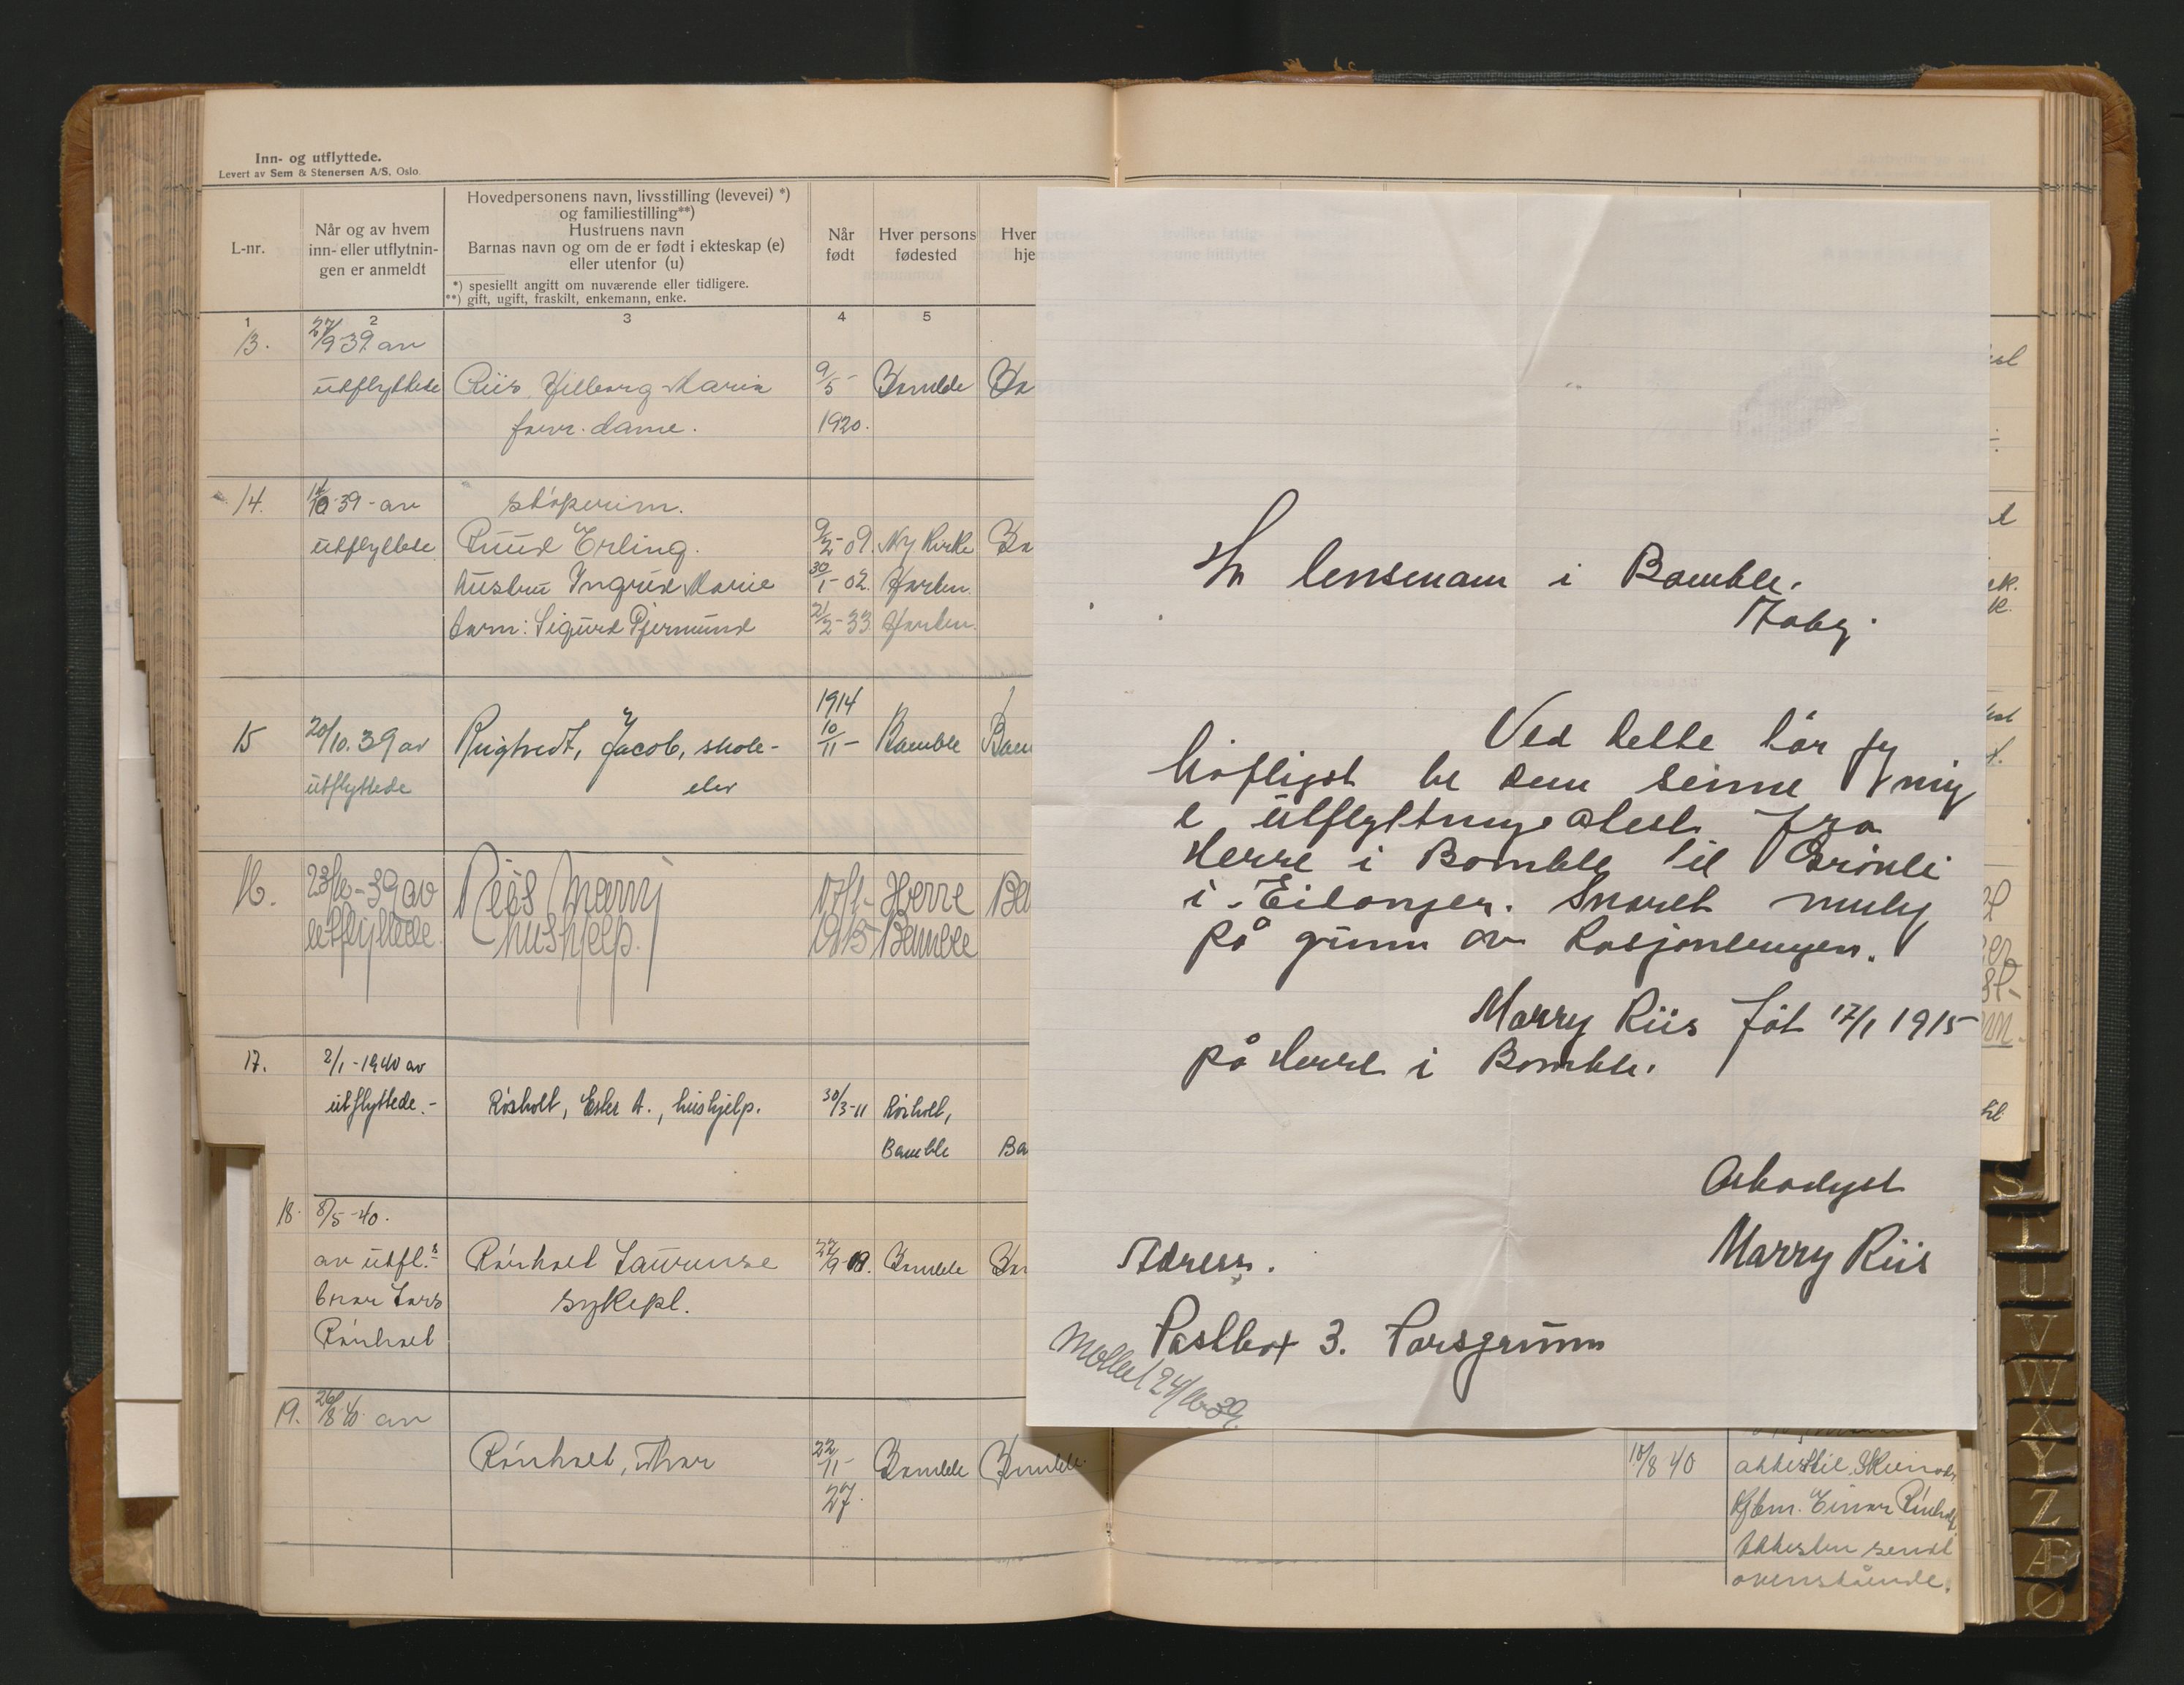 Inn- og utflyttede.
Levert av Sem & Stenersen A/S, Oslo.
L-nr.
Når og av hvem
inn- eller utflytnin-
gen er anmeldt
Hovedpersonens navn, livsstilling (levevei) *)
og familiestilling**)
Hustruens navn
Barnas navn og om de er født i ekteskap (e)
eller utenfor (u)
*) spesiellt angitt om nuværende eller tidligere.
**) gift, ugift, fraskilt, enkemann, enke.
Når
født
Hver persons
fødested
Hver
hje
1 2 3 4 5
13. 27/9-39 av
utflyttede Riis, Maria 9/5- Bamble Ba
dame. 1920.
14. 10-39-av støperim.
utflyttede Ruud Erling. 9/2-09. Ny Kirke Ba
hustru Ingrid Marie 30/1-02.
barn: Sigurd Gjermund 21/2-33
15 20/10.39 av Rugtvedt, Jacob, skole- 1914 10/11- Bamble Bam
utflyttede elev
16. 23/10-39 av Riis Marry 17/1- Herre Ba
utflyttede. hushjelp. 1915 Bamble
17. 2/1-1940 av
utflyttede.- Røsholt, Ester A., hushjelp. 30/3-11 Røsholt,
Bamble Ba
18. 8/5-40.
av utfl.s Rønholt Laurense 27/9-08. Bamble Ba
bror Lars sykepl.
Rønholt
19. 26/8 40 av
Rønholt, Thor 22/11- Bamble Bamble
27.
Hr lensmann i Bamble.
Ved dette tør jeg
høfligst be dem senne mig
e utflyttnings atest fra
Herre i Bamble til Grønli
i Eidanger. Snarest mulig
på grunn av Rasjoneringen.
Marry Riis føt 17/1 1915
på Herre i Bamble.
Arbødigst
Marry Riis
Adress.
Postbox 3. Porsgrunn
Mottatt 24/10-39.
10/8 40 attest til Skien
Einar Rønholt
Attesten sendt
ovenstående.
S
T
U
V
W
X
Y
Z
Æ
Ø